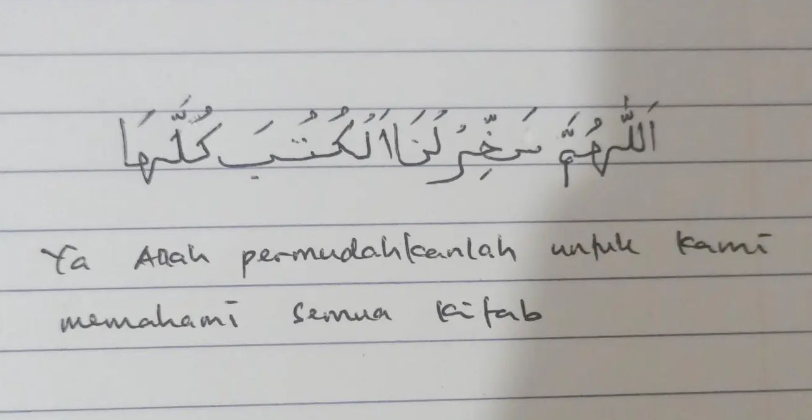 اَللّٰهُمَّ سَخِّرْ لَنَا اَلْكُتُبَ كُلَّهَا
Ya Allah permudahkanlah untuk kami
memahami semua kitab